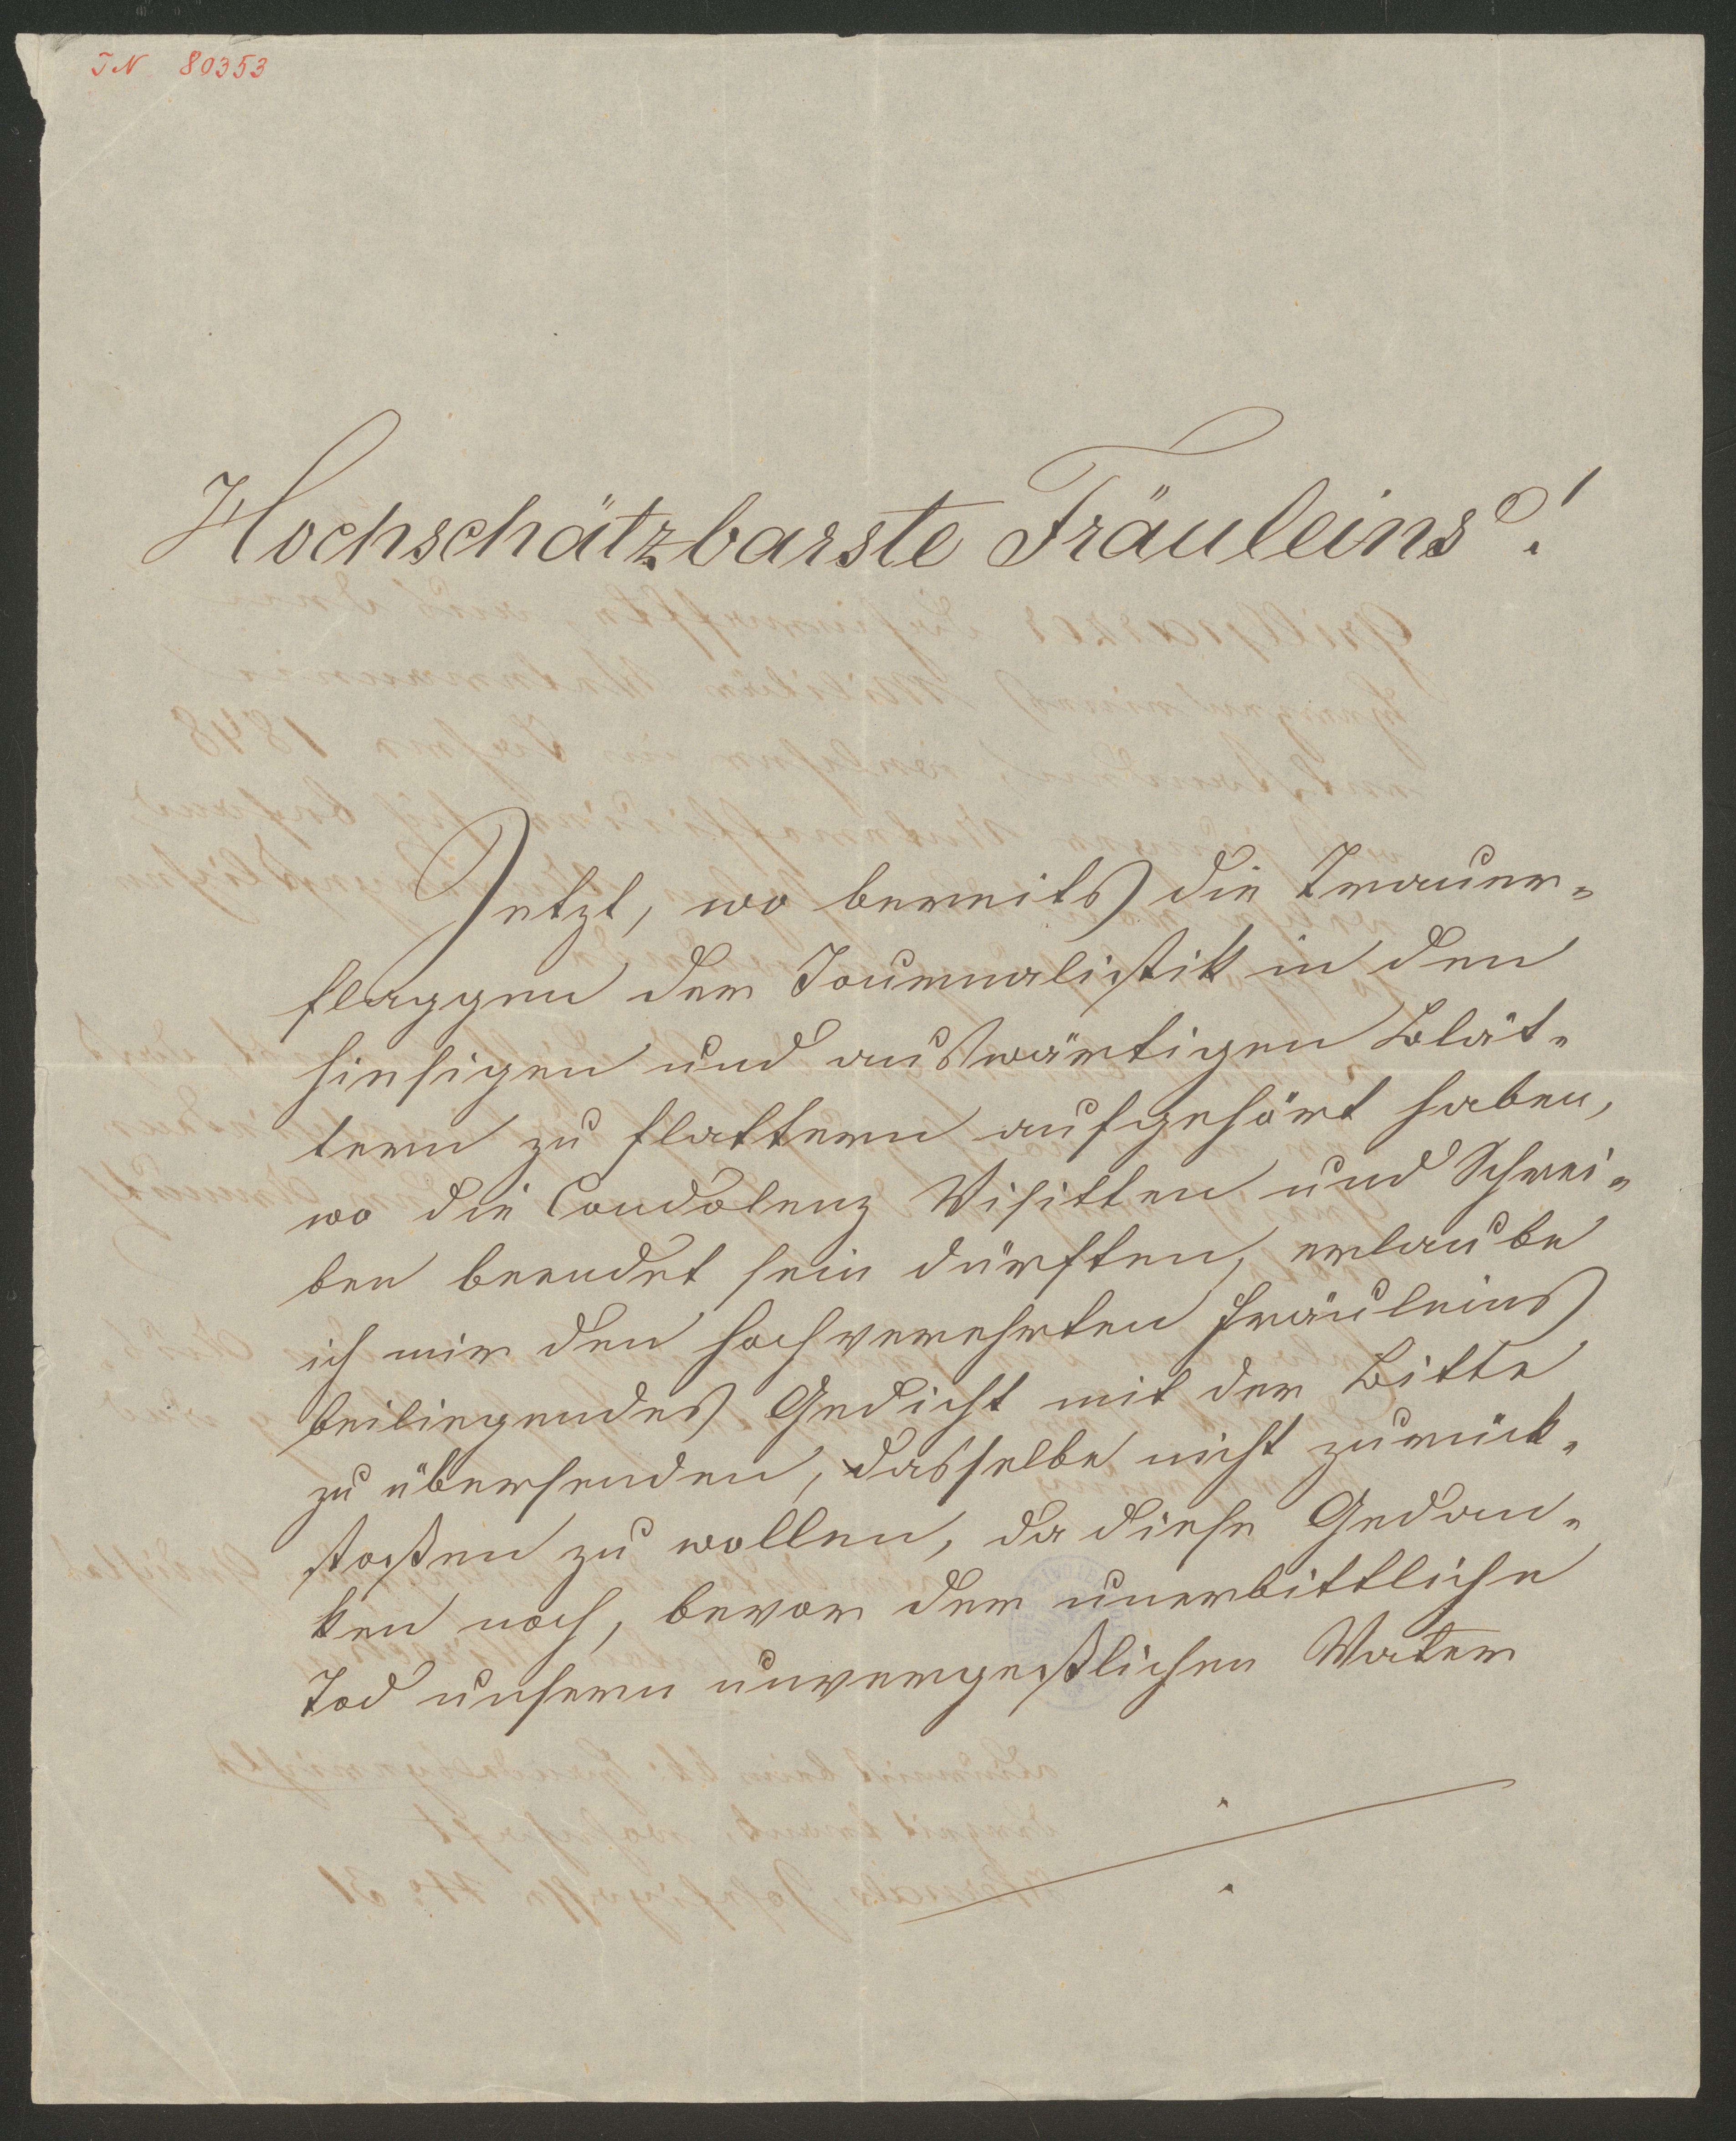 IN 80353
Hochschätzbarste Fräuleins!
Jetzt, wo bereits die Trauer-
flaggen der Journalistik in den
hiesigen und auswärtigen Blät-
tern zu flattern aufgehört haben,
wo die Condolenz Visitten und Schrei-
ben beendet sein dürften, erlaube
ich mir den hochverehrten Fräuleins
beiliegendes Gedicht mit der Bitte
zu übersenden, dasselbe nicht zurück-
stoßen zu wollen, da diese Gedan-
ken noch, bevor der unerbittliche
Tod unsern unvergeßlichen Vater